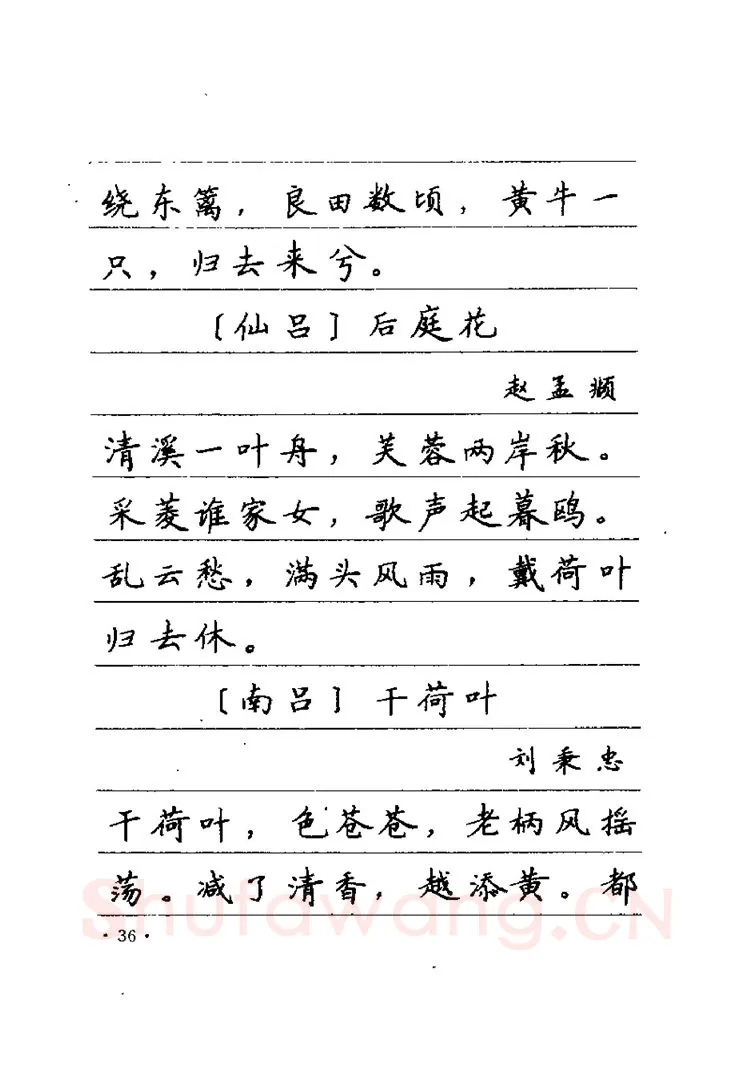 绕东篱，良田数顷，黄牛一
只，归去来兮。
〔仙吕〕后庭花
赵孟頫
清溪一叶舟，芙蓉两岸秋。
采菱谁家女，歌声起暮鸥。
乱云愁，满头风雨，戴荷叶
归去休。
〔南吕〕干荷叶
刘秉忠
干荷叶，色苍苍，老柄风摇
荡。减了清香，越添黄。都
Shufawang.CN
· 36 ·